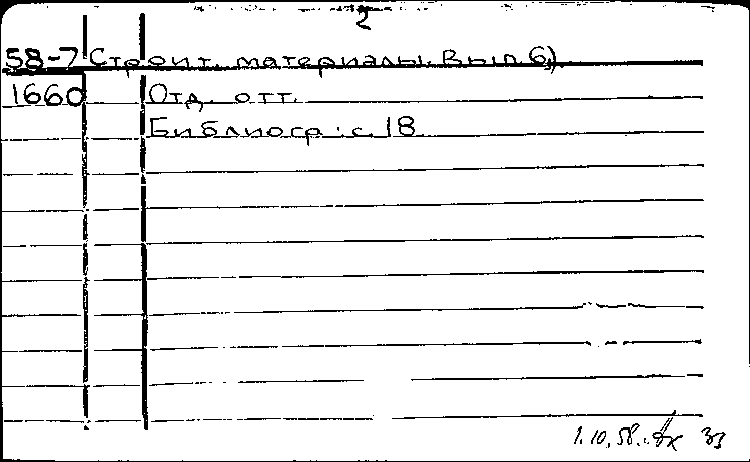 2
58-7 Строит. материалы. Вып 6)
1660 Отд. отт.
Библиогр: с. 18
1.10.58.